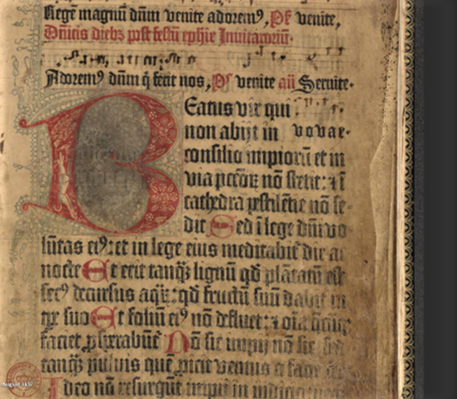 Rege magnū dn̄m venite adorem⁹, p̄s venite,
Dn̄icis dieb⁹ post festū ephīe Inuitatoriū.
Adorem⁹ dn̄m q̄ fecit nos, p̄s venite añ Seruite.
Beatus vir qui
non abijt in   vovae.
consilio impiorū et in
via pccōr nō stetit: ⁊ ī
cathedra pestilētie nō se-
dit Sed ī lege dn̄i vo
lūtas ei⁹: et in lege eius meditabit̄ die ac
nocte Et erit tanq̄ lignū qd̄ plātatū est
sec⁹ decursus aq̄ꝝ: qd̄ fructū suū dabit in
tꝑe suo Et foliū ei⁹ nō defluet: ⁊ oīa
faciet ꝓsperabūt̄ Nō sic impij nō sic sed
tanq̄ puluis quē ꝓicit ventus a facie
Ideo nō resurgūt impij in